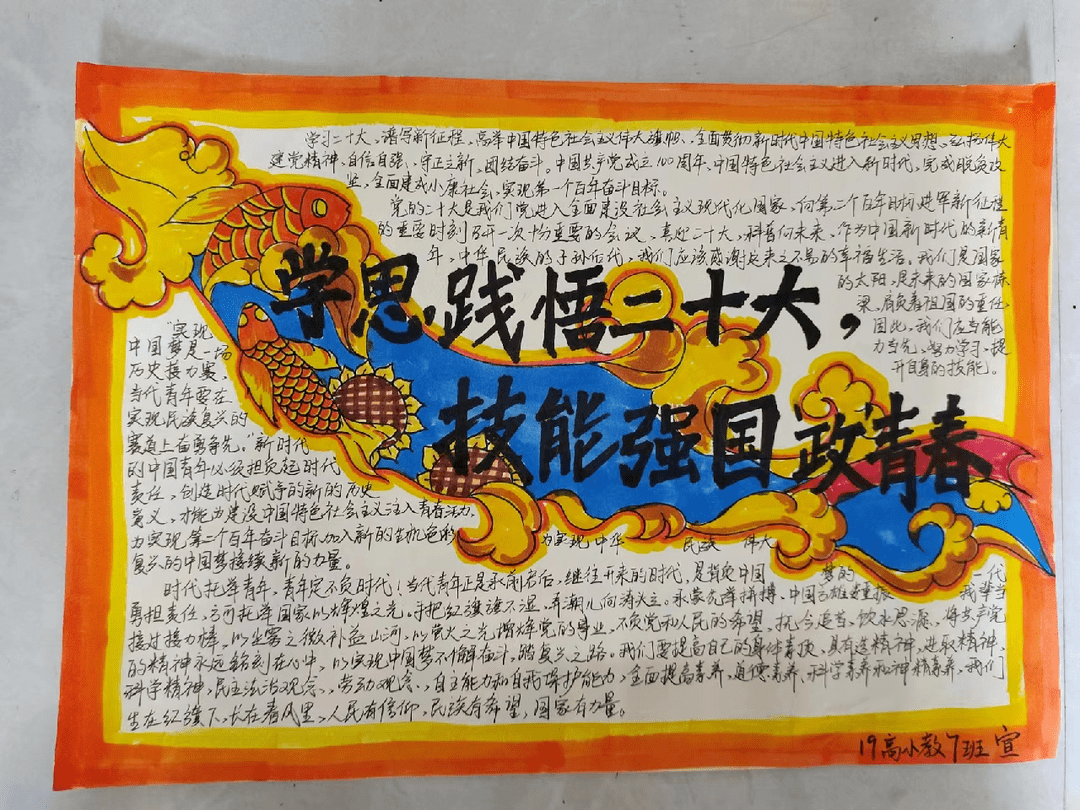 学习二十大，谱写新征程，高举中国特色社会主义伟大旗帜、全面贯彻新时代中国特色社会主义思想、弘扬伟大
建党精神、自信自强、守正立新、团结奋斗。中国共产党成立100周年、中国特色社会主义进入新时代，完成脱贫攻
坚，全面建成小康社会，实现第一个百年奋斗目标。
党的二十大是我们党进入全面建设社会主义现代化国家，向第二个百年目标进军新征程
的重要时刻召开一次十分重要的会议，喜迎二十大，科普向未来，作为中国新时代的新青
年，中华民族的子孙后代，我们应该感谢来之不易的幸福生活。我们是国家
的太阳，是未来的国家栋
梁，肩负着祖国的重任，
因此，我们应当能
力当先，努力学习，提
升自身的技能。
学思践悟二十大，
技能强国政青春
"实现
中国梦是一场
历史接力赛，
当代青年要在
实现民族复兴的
赛道上奋勇争先。"新时代
的中国青年必须担负起时代
责任，创造时代赋予的新的历史
意义，才能为建设中国特色社会主义注入青春活力，
为实现第二个百年奋斗目标加入新的生机色彩 为实现中华 民族 伟大
复兴的中国梦接续新的力量。
时代托举青年，青年定不负时代！当代青年正是承前启后，继往开来的时代，是肩负中国 梦的 一代
勇担责任，方可托举国家以辉煌之光，手把红旗旗不湿，弄潮儿向涛头立。承蒙先辈拼搏，中国方雄姿重振 我辈当
接过接力棒，以尘雾之微补益山河，以萤火之光增辉党的事业，不负党和人民的希望，抚今追昔，饮水思源，将共产党
的精神永远铭刻在心中，以实现中国梦不懈奋斗，踏复兴之路。我们要提高自己的身体素质，具有
精神，进取精神，
科学精神，民主法治观念、劳动观念、自主能力和自我保护能力，全面提高素养，道德素养、科学素养和神精素养，我们
生在红旗下，长在春风里，人民有信仰，民族有希望，国家有力量。
19高小教7班 宣